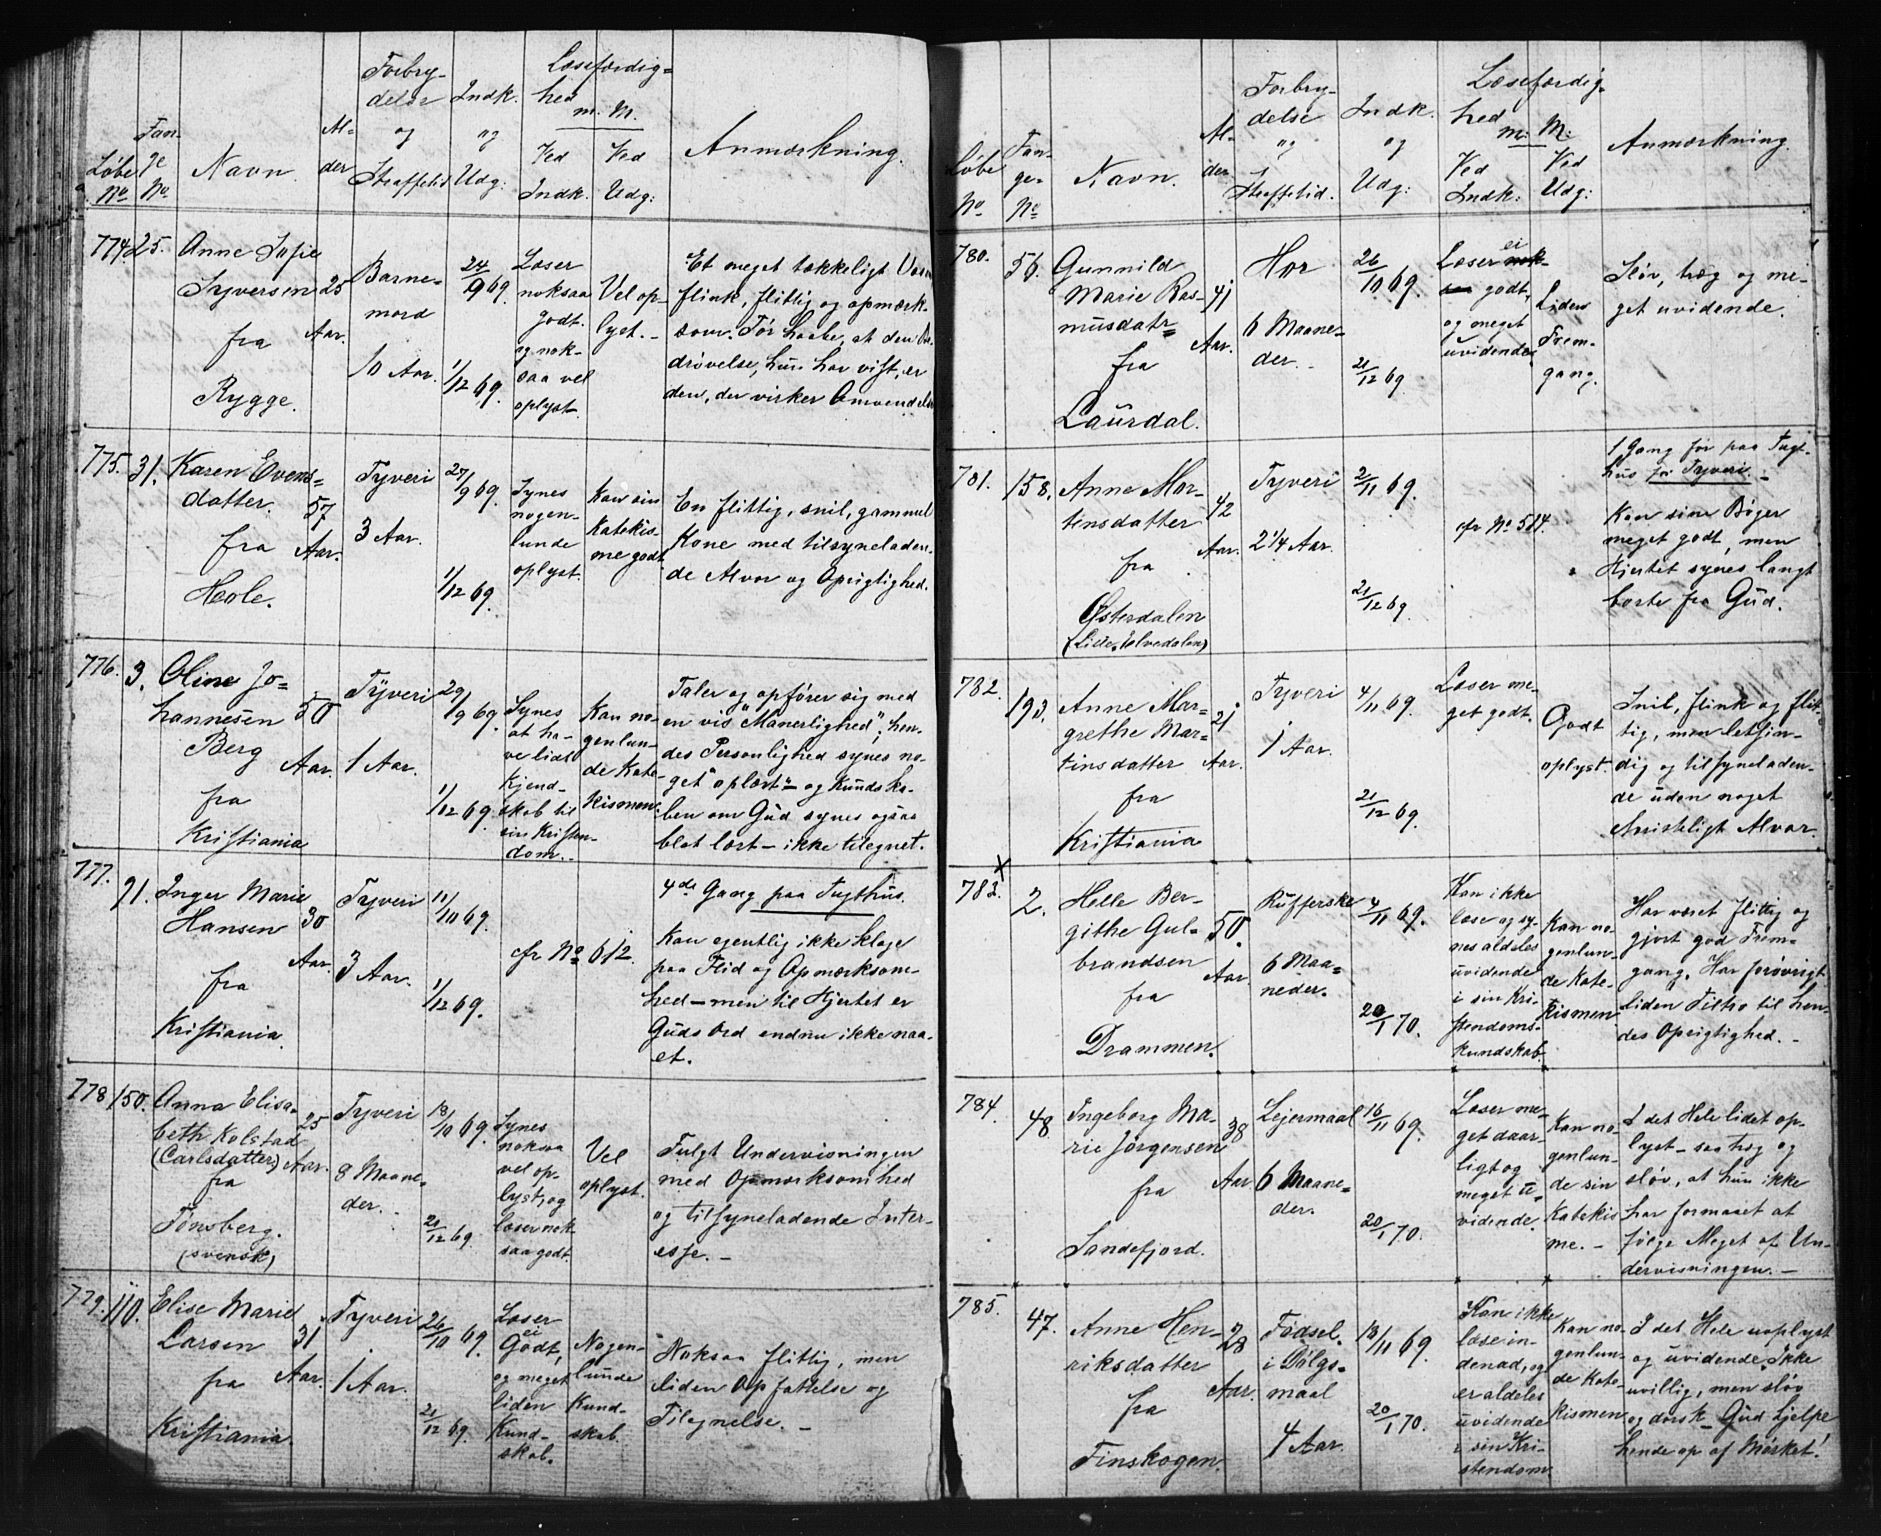 Løbe No
Fange No
Navn.
Alder
Forbrydelse og Straffetid
Indk. og Udg:
Læsefærdighed m. M.
Ved Indk.
Ved Udg:
Anmærkning.
774
25.
Anne Sofie
Syversen
fra
Rygge.
25
Aar.
Barne-
mord
10 Aar.
24/9 69.
1/12 69.
Læser
noksaa
godt.
og nok-
saa vel
oplyst.
Vel op-
lyst. -
Et meget tækkeligt
flink, flittig og opmærk-
som. Tør haabe, at den
drøvelse, hun har vist, er
den, der virker Omvendelse
775.
31.
Karen Evens=
datter.
fra
Hole.
57
Aar.
Tyveri
3 Aar.
27/9 69.
1/12 69.
Synes
nogen-
lunde
oplyst.
Kan sin
Katekis-
me godt
En flittig, snil, gammel
Kone med tilsyneladen-
de Alvor og Oprigtighed.
776.
3.
Oline Jo=
hannesen
Berg
fra
Kristiania
50
Aar.
Tyveri
1 Aar.
29/9 69.
1/12 69.
Synes
at ha-
ve lidt
Kjend-
skab til
sin Kristen-
dom. -
Kan no-
genlun-
de Kate-
kismen.
Taler og opfører sig med
en vis "Manerlighed"; hen-
des Personlighed synes no-
get "oplært" - og Kundska-
ben om Gud synes ogsaa
blot lært - ikke tilegnet.
777.
91.
Inger Marie
Hansen
fra
Kristiania.
30
Aar.
Tyveri
3 Aar.
11/10 69.
1/12 69.
cfr No 612.
4de Gang paa Tugthus.
Kan egentlig ikke klage
paa Flid og Opmærksom-
hed - men til Hjertet er
Guds Ord endnu ikke naa-
et.
778
150.
Anna Elisa-
beth Kolstad
(Carlsdatter)
fra
Tønsberg.
(svensk)
25
Aar.
Tyveri
8 Maane-
der. -
18/10 69.
21/12 69.
Synes
noksaa
vel op-
lyst, og
læser nok-
saa godt.
Vel
oplyst.
Fulgt Undervisningen
med Opmærksomhed
og tilsyneladende Inter-
esse. -
779.
110.
Elise Marie
Larsen
fra
Kristiania.
31
Aar.
Tyveri
1 Aar.
26/10 69.
21/12 69.
Læser
ei
Godt,
og meget
liden
Kund-
skab.
Nogen-
lunde
Kund-
skab.
Noksaa flittig, men
liden Opfattelse og
Tilegnelse. -
Løbe No
Fange- No
Navn.
Alder
Forbrydelse og Straffetid.
Indk. og Udg:
Læsefærdighed m: M:
Ved Indk:
Ved Udg:
Anmærkning.
780.
56.
Gunnild
Marie Ras-
musdatr=
fra
Laurdal.
41
Aar.
Hor
6 Maane-
der. -
26/10 69.
21/12 69.
ei
Læser nok-
saa godt,
og meget
uvidende.
Liden
Frem-
gang.
Sløv, træg og me-
get uvidende.
781.
158.
Anne Mor-
tensdatter
fra
Østerdalen
(Lille Elvedalen)
42
Aar.
Tyveri
2 1/4 Aar.
2/11 69.
21/12 69.
cfr No 514.
1 Gang før paa Tugt-
hus for Tyveri. -
Kan sine Bøger
meget godt, men
Hjertet synes langt
borte fra Gud.
782.
193.
Anne Mar=
grethe Mar=
tinsdatter
fra
Kristiania
21
Aar.
Tyveri
1 Aar.
4/11 69.
21/12 69.
Læser me-
get godt.
Godt
oplyst.
Snil, flink og flit-
tig, men letsin-
dig og tilsyneladen-
de uden noget
christeligt Alvor.
X
783.
2.
Helle Ber-
githe Gul-
brandsen
fra
Drammen.
50.
Aar.
Rufferske
6 Maa=
neder.
4/11 69.
20/1 70.
Kan ikke
læse og sy-
nes aldeles
uvidende
i sin Kri-
stendoms-
kundskab.
Kan no-
genlun-
de Kate-
kismen
Har været flittig og
gjort god Frem-
gang. Har forøvrigt
liden Tiltro til hen-
des Oprigtighed. -
784.
48.
Ingeborg Ma-
rie Jørgensen
fra
Sandefjord.
38
Aar
Lejermaal
6 Maane=
der.
16/11 69.
20/1 70.
Læser me-
get daar-
ligt og
meget u-
vidende.
Kan no-
genlun-
de sin
Katekis-
me. -
I det Hele lidet op-
lyst - saa træg og
sløv, at hun ikke
har formaaet at
følge Meget af Un-
dervisningen. -
785.
47.
Anne Hen-
riksdatter
fra
Finskogen.
28
Aar.
Fødsel.
i Dølgs-
maal
4 Aar.
18/11 69.
20/1 70.
Kan ikke
læse in-
denad, og
er aldeles
uvidende
i sin Kri-
stendom
Kan no-
genlun-
de Kate-
kismen
I det Hele uoplyst
og uvidende. Ikke
uvillig, men sløv
og dorsk - Gud hjelpe
hende op af Mørket!